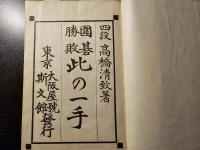 四段 高橋清致著
圍碁
勝敗
此の一手
東京 大阪屋號
斯文館發行